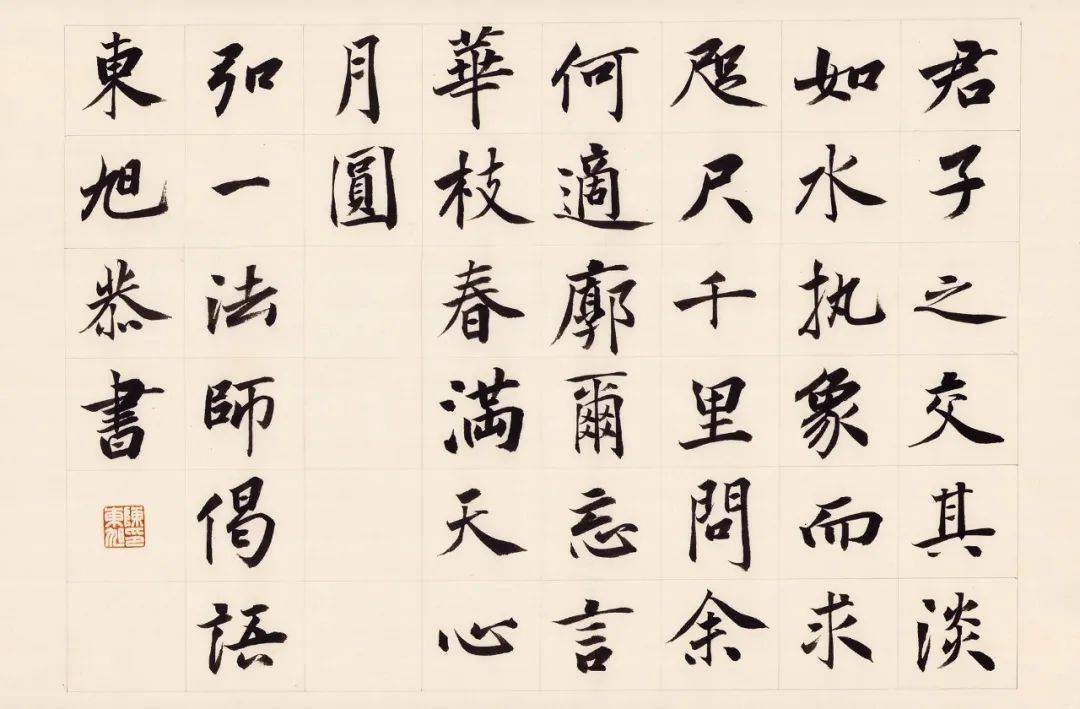 君子之交其淡
如水执象而求
咫尺千里問余
何適廓爾忘言
華枝春滿天心
月圓
弘一法師偈語
東旭恭書
陳東旭印